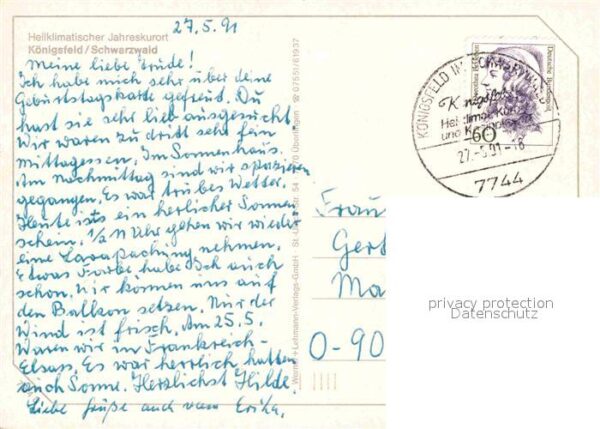 27.5.91
Heilklimatischer Jahreskurort
Königsfeld / Schwarzwald
Meine liebe Trude!
Ich habe mich sehr über deine
Geburtstagskarte gefreut. Du
hast sie sehr lieb ausgesucht.
Wir waren zu dritt sehr fein
Mittagessen, Im Sonnenhaus.
Am Nachmittag sind wir spazieren
gegangen. Es war trübes Wetter.
Heute ist ein herlicher Sonnen
schein. 1/2 11 Uhr gehen wir wieder
eine Lavapackung nehmen.
Etwas Farbe habe Ich auch
schon. Wir können uns auf
den Balkon setzen. Nur der
Wind ist frisch. Am 25.5.
Waren wir im Frankreich-
Elsass. Es war herrlich hatten
auch Sonne. Herzlichst Hilde.
Liebe Grüße auch vom Erika.
Werner + Lehmann-Verlags-GmbH St.- 54 70 Überlingen ☎ 07551/61937
Deutsche Bundespost
60
KÖNIGSFELD IM SCHWARZWALD
Königsfeld
Heilklima. Kur-
und
27.-5.91-18
7744
Frau
Gert
Ma
O-90
privacy protection
Datenschutz